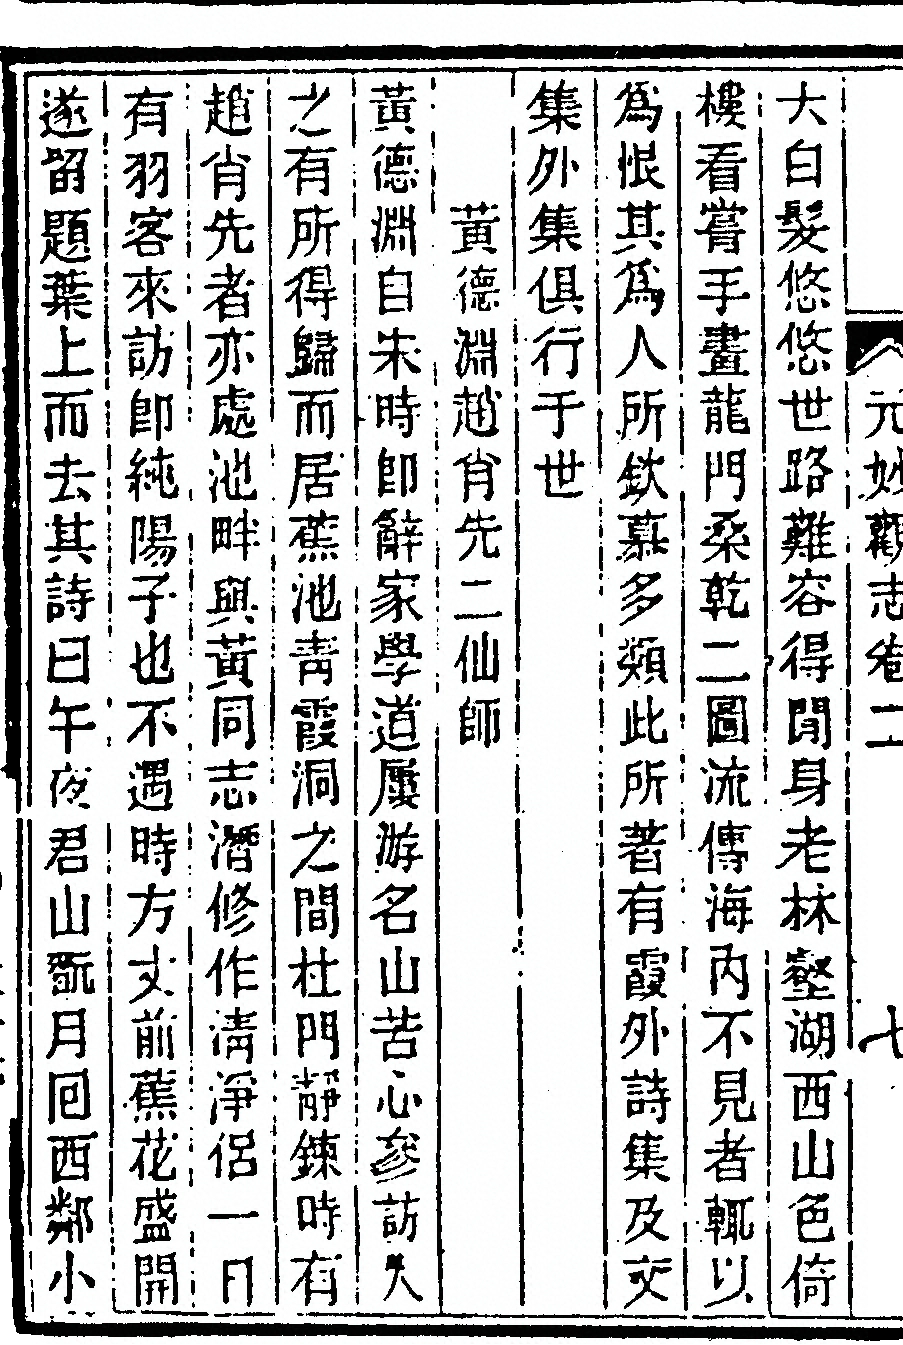 元妙觀志卷二　七
大白髮悠悠世路難容得閒身老林壑湖西山色倚
樓看嘗手畫龍門桑乾二圖流傳海內不見者輒以
爲恨其爲人所欽慕多類此所著有霞外詩集及文
集外集俱行于世
黃德淵趙肖先二仙師
黃德淵自未時卽辭家學道屢游名山苦心參訪久
之有所得歸而居蕉池靑霞洞之間杜門靜鍊時有
趙肖先者亦處池畔與黃同志潛修作淸淨侶一日
有羽客來訪卽純陽子也不遇時方丈前蕉花盛開
遂留題葉上而去其詩曰午夜君山翫月回西鄰小